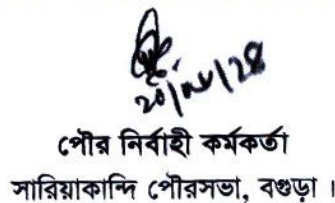 পৌর নির্বাহী কর্মকর্তা
সারিয়াকান্দি পৌরসভা, বগুড়া।